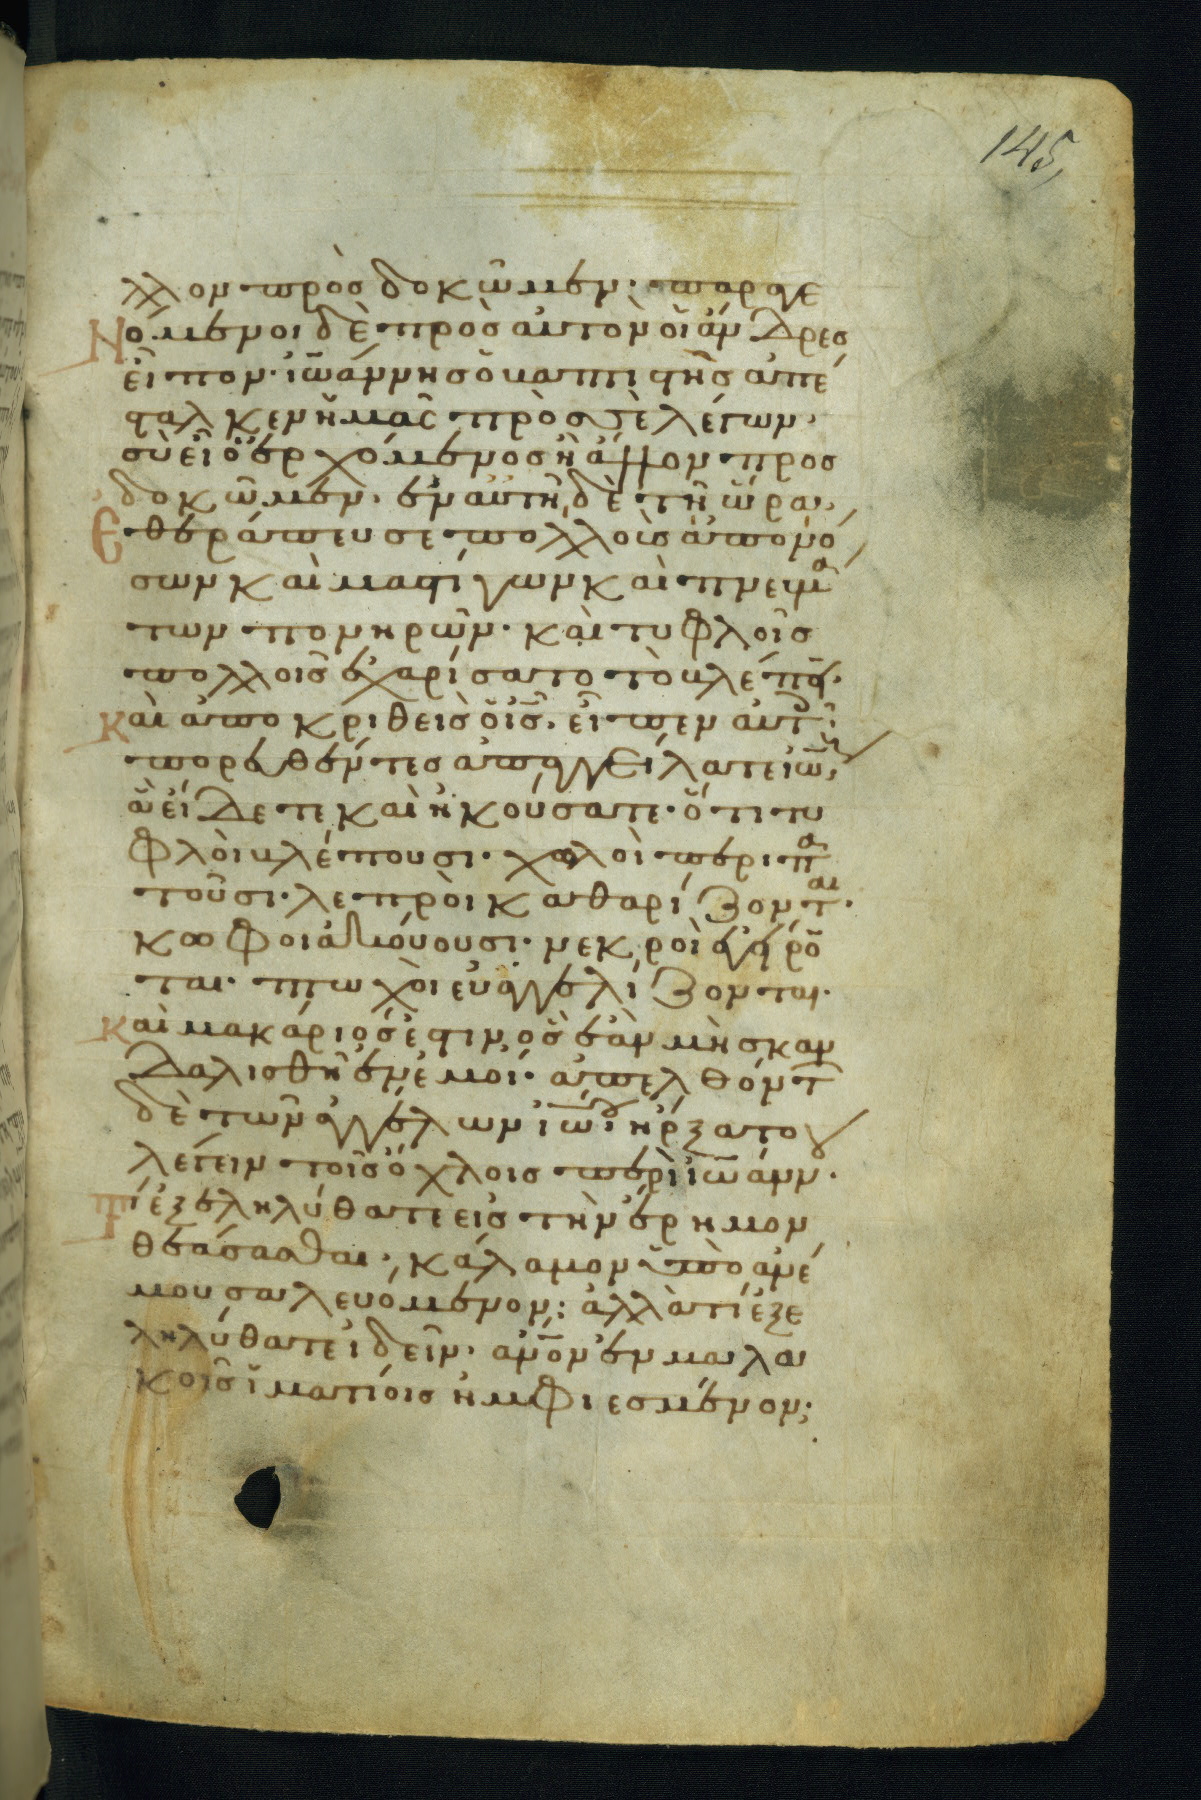 145,
λλον προσδοκῶμεν· παραγε
Νόμενοι δὲ πρὸσ αυτον ὁι ἄνδρεσ
ἐῖπον· ἰω̅άννησ ὁ βαπτιστὴσ ἀπέ
σταλκεν ἡμᾶς πρὸσ σὲ λέγων·
σὺ εἶ ὁ ἐρχόμενοσ ἢ ἄλλον προσ
δοκῶμεν· ἐν αὐτῆ δὲ τῆ ὥρα·
Ἐθεράπευσε πολλοὺσ ἀπο νό
σων καὶ μαστίγων καὶ πνευμα
των πονηρῶν· καὶ τυφλοῖσ
πολλοῖσ ἐχαρίσατο τὸ βλέπειν·
Καὶ ἀποκριθεὶσ ὁ ι̅ς̅· εἶπεν αὐτοῖσ
πορευθέντεσ ἀπαγγείλατε ἰω̅
ἃ εἴδετε καὶ ἠκούσατε· ὅτι τυ
φλὸι βλέπουσι· χωλοὶ περιπα
τοῦσι· λεπρὸι καθαρίζονται·
κωφοι ἀκούουσι· νεκροὶ ἐγείρον
ται· πτωχὸι ἐυαγγελίζονται·
Καὶ μακάριοσ ἐστιν ὃσ ἐὰν μὴ σκαν
δαλισθῆ ἐν ἐμοί· ἀπελθόντων
δὲ τῶν ἀγγέλων ἰω̅ου ἤρξατο
λέγειν τοῖσ ὄχλοισ περὶ ἰω̅άνν·
Τί ἐξεληλύθατε εἰσ τὴν ἔρημον
θεάσασθαι· κάλαμον ὑπὸ ἀνέ
μου σαλευόμενον; ἀλλὰ τί ἐξε
ληλύθατε ἰδεῖν· α̅ν̅ο̅ν ἐν μαλα
κοῖσ ἱματίοισ ἠμφιεσμένον;